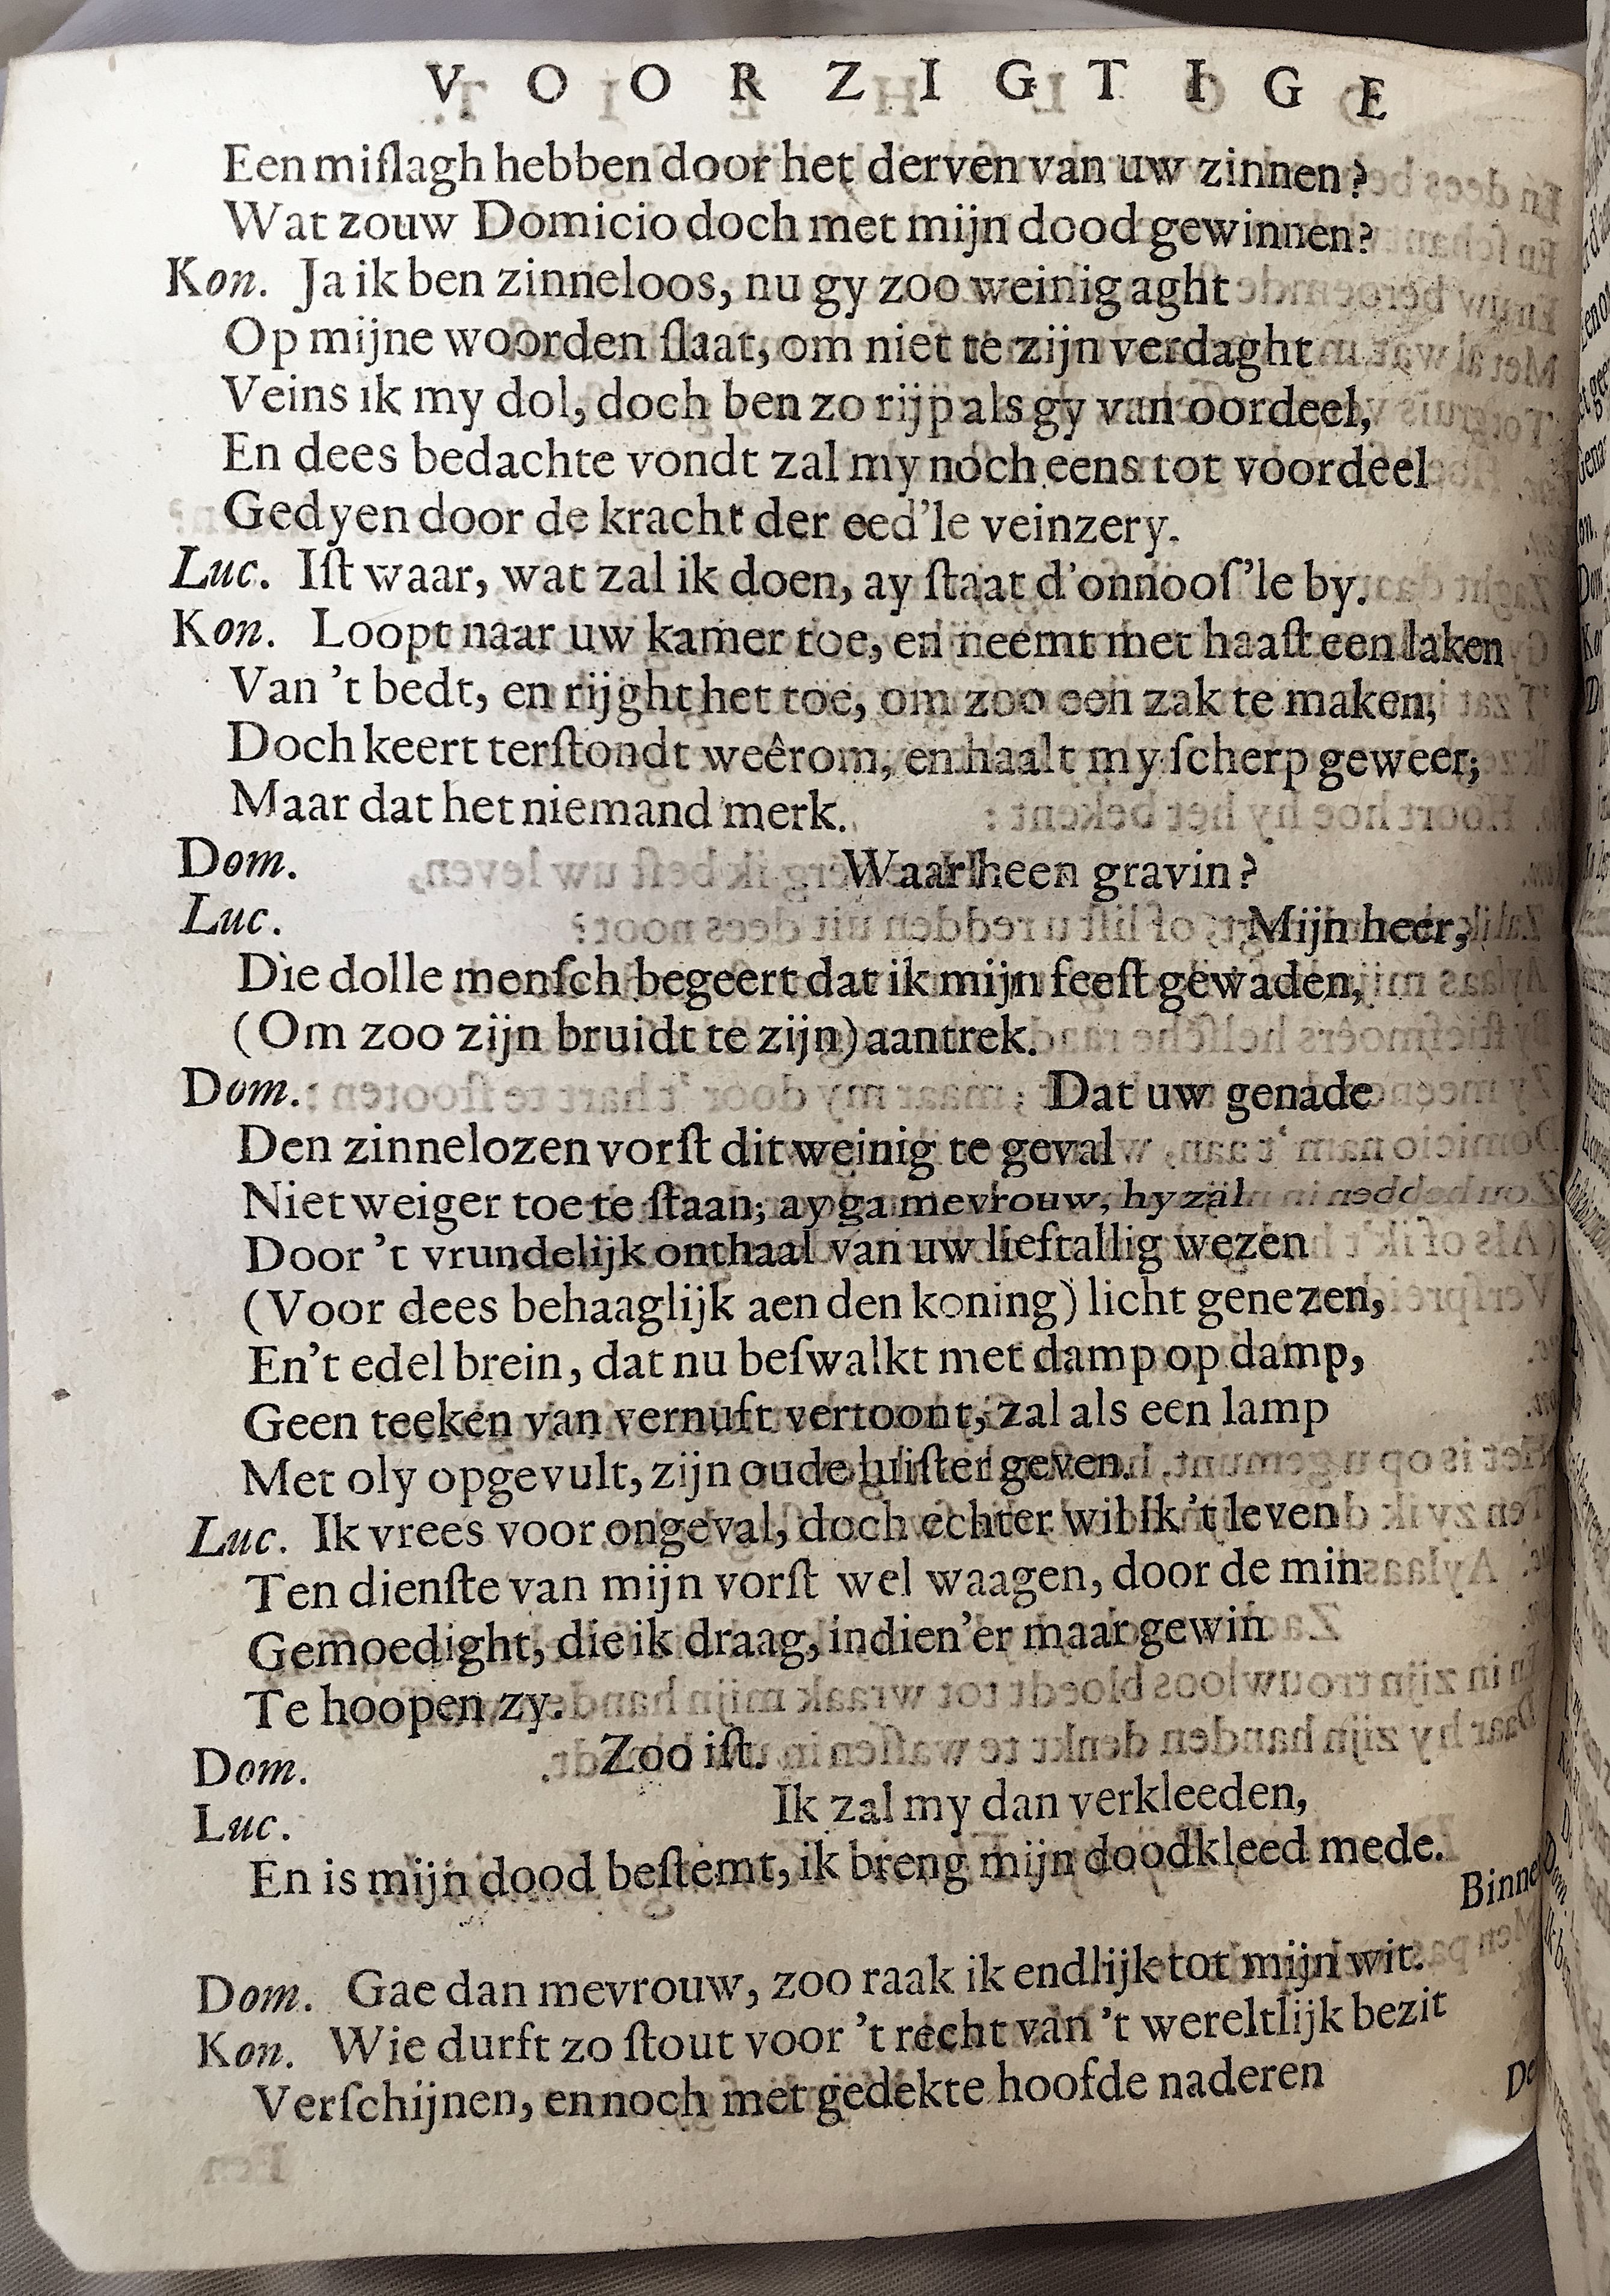 VOORZIGTIGE
Een miſlagh hebben door het derven van uw zinnen?
Wat zouw Domicio doch met mijn dood gewinnen?
Kon. Ja ik ben zinneloos, nu gy zoo weinig aght
Op mijne woorden ſlaat, om niet te zijn verdaght
Veins ik my dol, doch ben zo rijp als gy van oordeel,
En dees bedachte vondt zal my noch eens tot voordeel
Gedyen door de kracht der eed'le veinzery.
Luc. Iſt waar, wat zal ik doen, ay ſtaat d'onnooſ'le by.
Kon. Loopt naar uw kamer toe, en neemt met haaſt een laken
Van 't bedt, en rijght het toe, om zoo een zak te maken,
Doch keert terſtondt weêrom, en haalt my ſcherp geweer;
Maar dat het niemand merk.
Dom. Waar heen gravin?
Luc. Mijn heer,
Die dolle menſch begeert dat ik mijn feeſt gewaden,
(Om zoo zijn bruidt te zijn) aantrek.
Dom. Dat uw genade
Den zinnelozen vorſt dit weinig te geval
Niet weiger toe te ſtaan; ay ga mevrouw, hy zal
Door 't vrundelijk onthaal van uw lieftallig wezen
(Voor dees behaaglijk aen den koning) licht genezen,
En't edel brein, dat nu beſwalkt met damp op damp,
Geen teeken van vernuft vertoont, zal als een lamp
Met oly opgevult, zijn oude luiſter geven.
Luc. Ik vrees voor ongeval, doch echter wil ik 't leven
Ten dienſte van mijn vorſt wel waagen, door de min
Gemoedight, die ik draag, indien'er maar gewin
Te hoopen zy.
Dom. Zoo iſt.
Luc. Ik zal my dan verkleeden,
En is mijn dood beſtemt, ik breng mijn doodkleed mede.
Binne
Dom. Gae dan mevrouw, zoo raak ik endlijk tot mijn wit.
Kon. Wie durft zo ſtout voor 't recht van 't wereltlijk bezit
Verſchijnen, en noch met gedekte hoofde naderen